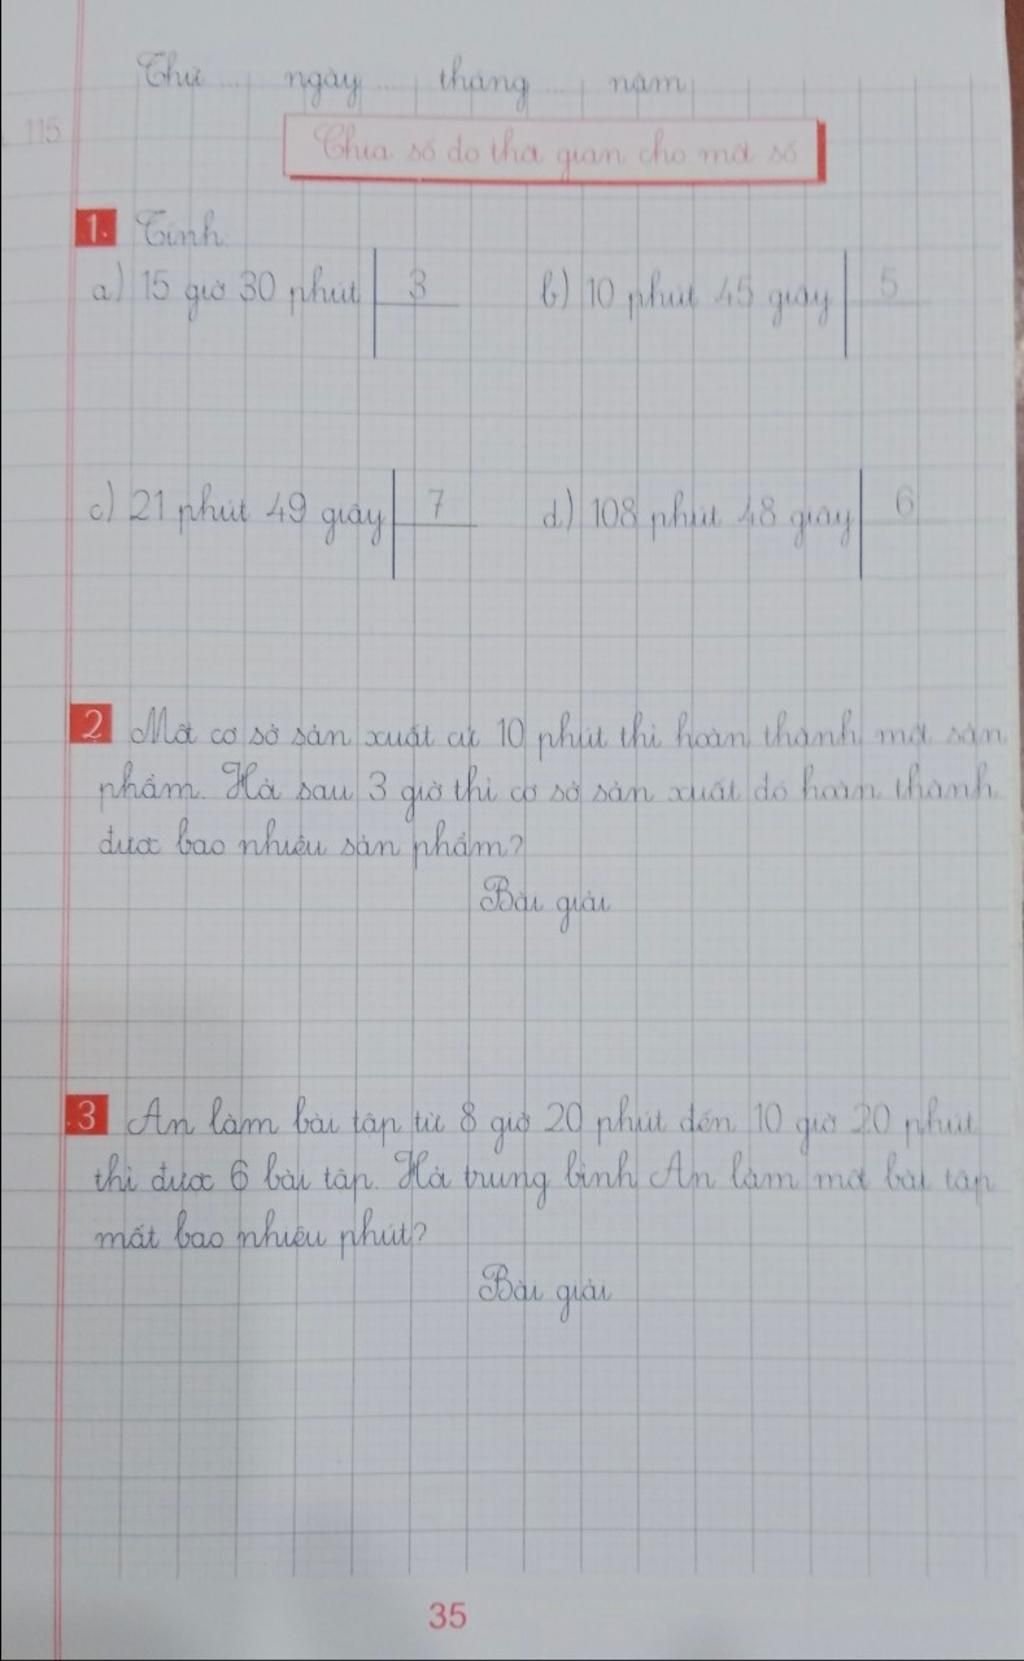 Thứ ... ngày ... tháng ... năm
115
Chia số đo thời gian cho một số
1. Tính
a) 15 giờ 30 phút 3 b) 10 phút 45 giây 5
c) 21 phút 49 giây 7 d) 108 phút 48 giây 6
2 Một cơ sở sản xuất cứ 10 phút thì hoàn thành một sản
phẩm. Hỏi sau 3 giờ thì cơ sở sản xuất đó hoàn thành
được bao nhiêu sản phẩm?
Bài giải
3 An làm bài tập từ 8 giờ 20 phút đến 10 giờ 20 phút
thì được 6 bài tập. Hỏi trung bình An làm một bài tập
mất bao nhiêu phút?
Bài giải
35